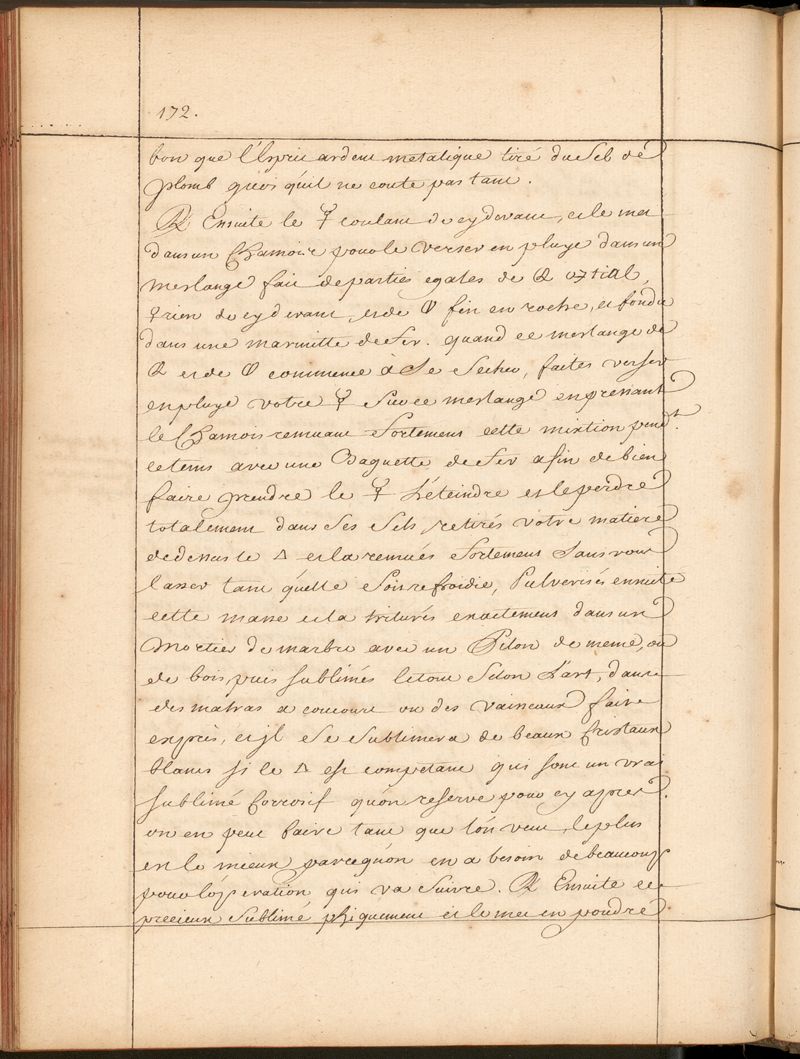 172.
bon que l'Esprit ardent metalique tiré du Sel de
plomb quoi qu'il ne coute pas tant.
℞ Ensuite le ☿ coulant de cy devant, et le met
dans un Chamois pour le verser en pluye dans un
meslange fait de parties egales de
☿rien de cy devant, et de fin en roche, et fondu
dans une marmitte de fer. quand ce meslange de
et de commence à Se Secher, faites verser
en pluye votre ☿ Sur ce meslange en pressant
le Chamois remuant fortement cette mixtion pend.t
ce tems avec une Baguette de fer afin de bien
faire prendre le ☿ L'éteindre et le perdre
totalement dans Ses Sels, retirés votre matiere
de dessus le △ et la remués fortement Sans vous
lasser tant qu'elle Soit refroidie, Pulverisés ensuite
cette masse et la triturés exactement dans un
Mortier de marbre avec un Pilon de meme, ou
de bois, puis sublimés le tout Selon L'art, dans
des matras a cou court ou des vaisseaux faits
exprès, et jl Se Sublimera de beaux Cristaux
blancs si le △ est competant qui sont un vrai
sublimé Corrosif qu'on reserve pour cy apres.
on en peut faire tant que l'on veut, le plus
est le mieux parcequ'on en a besoin de beaucoup
pour l'operation qui va Suivre. ℞ Ensuite ce
precieux Sublimé phiquement et le met en poudre